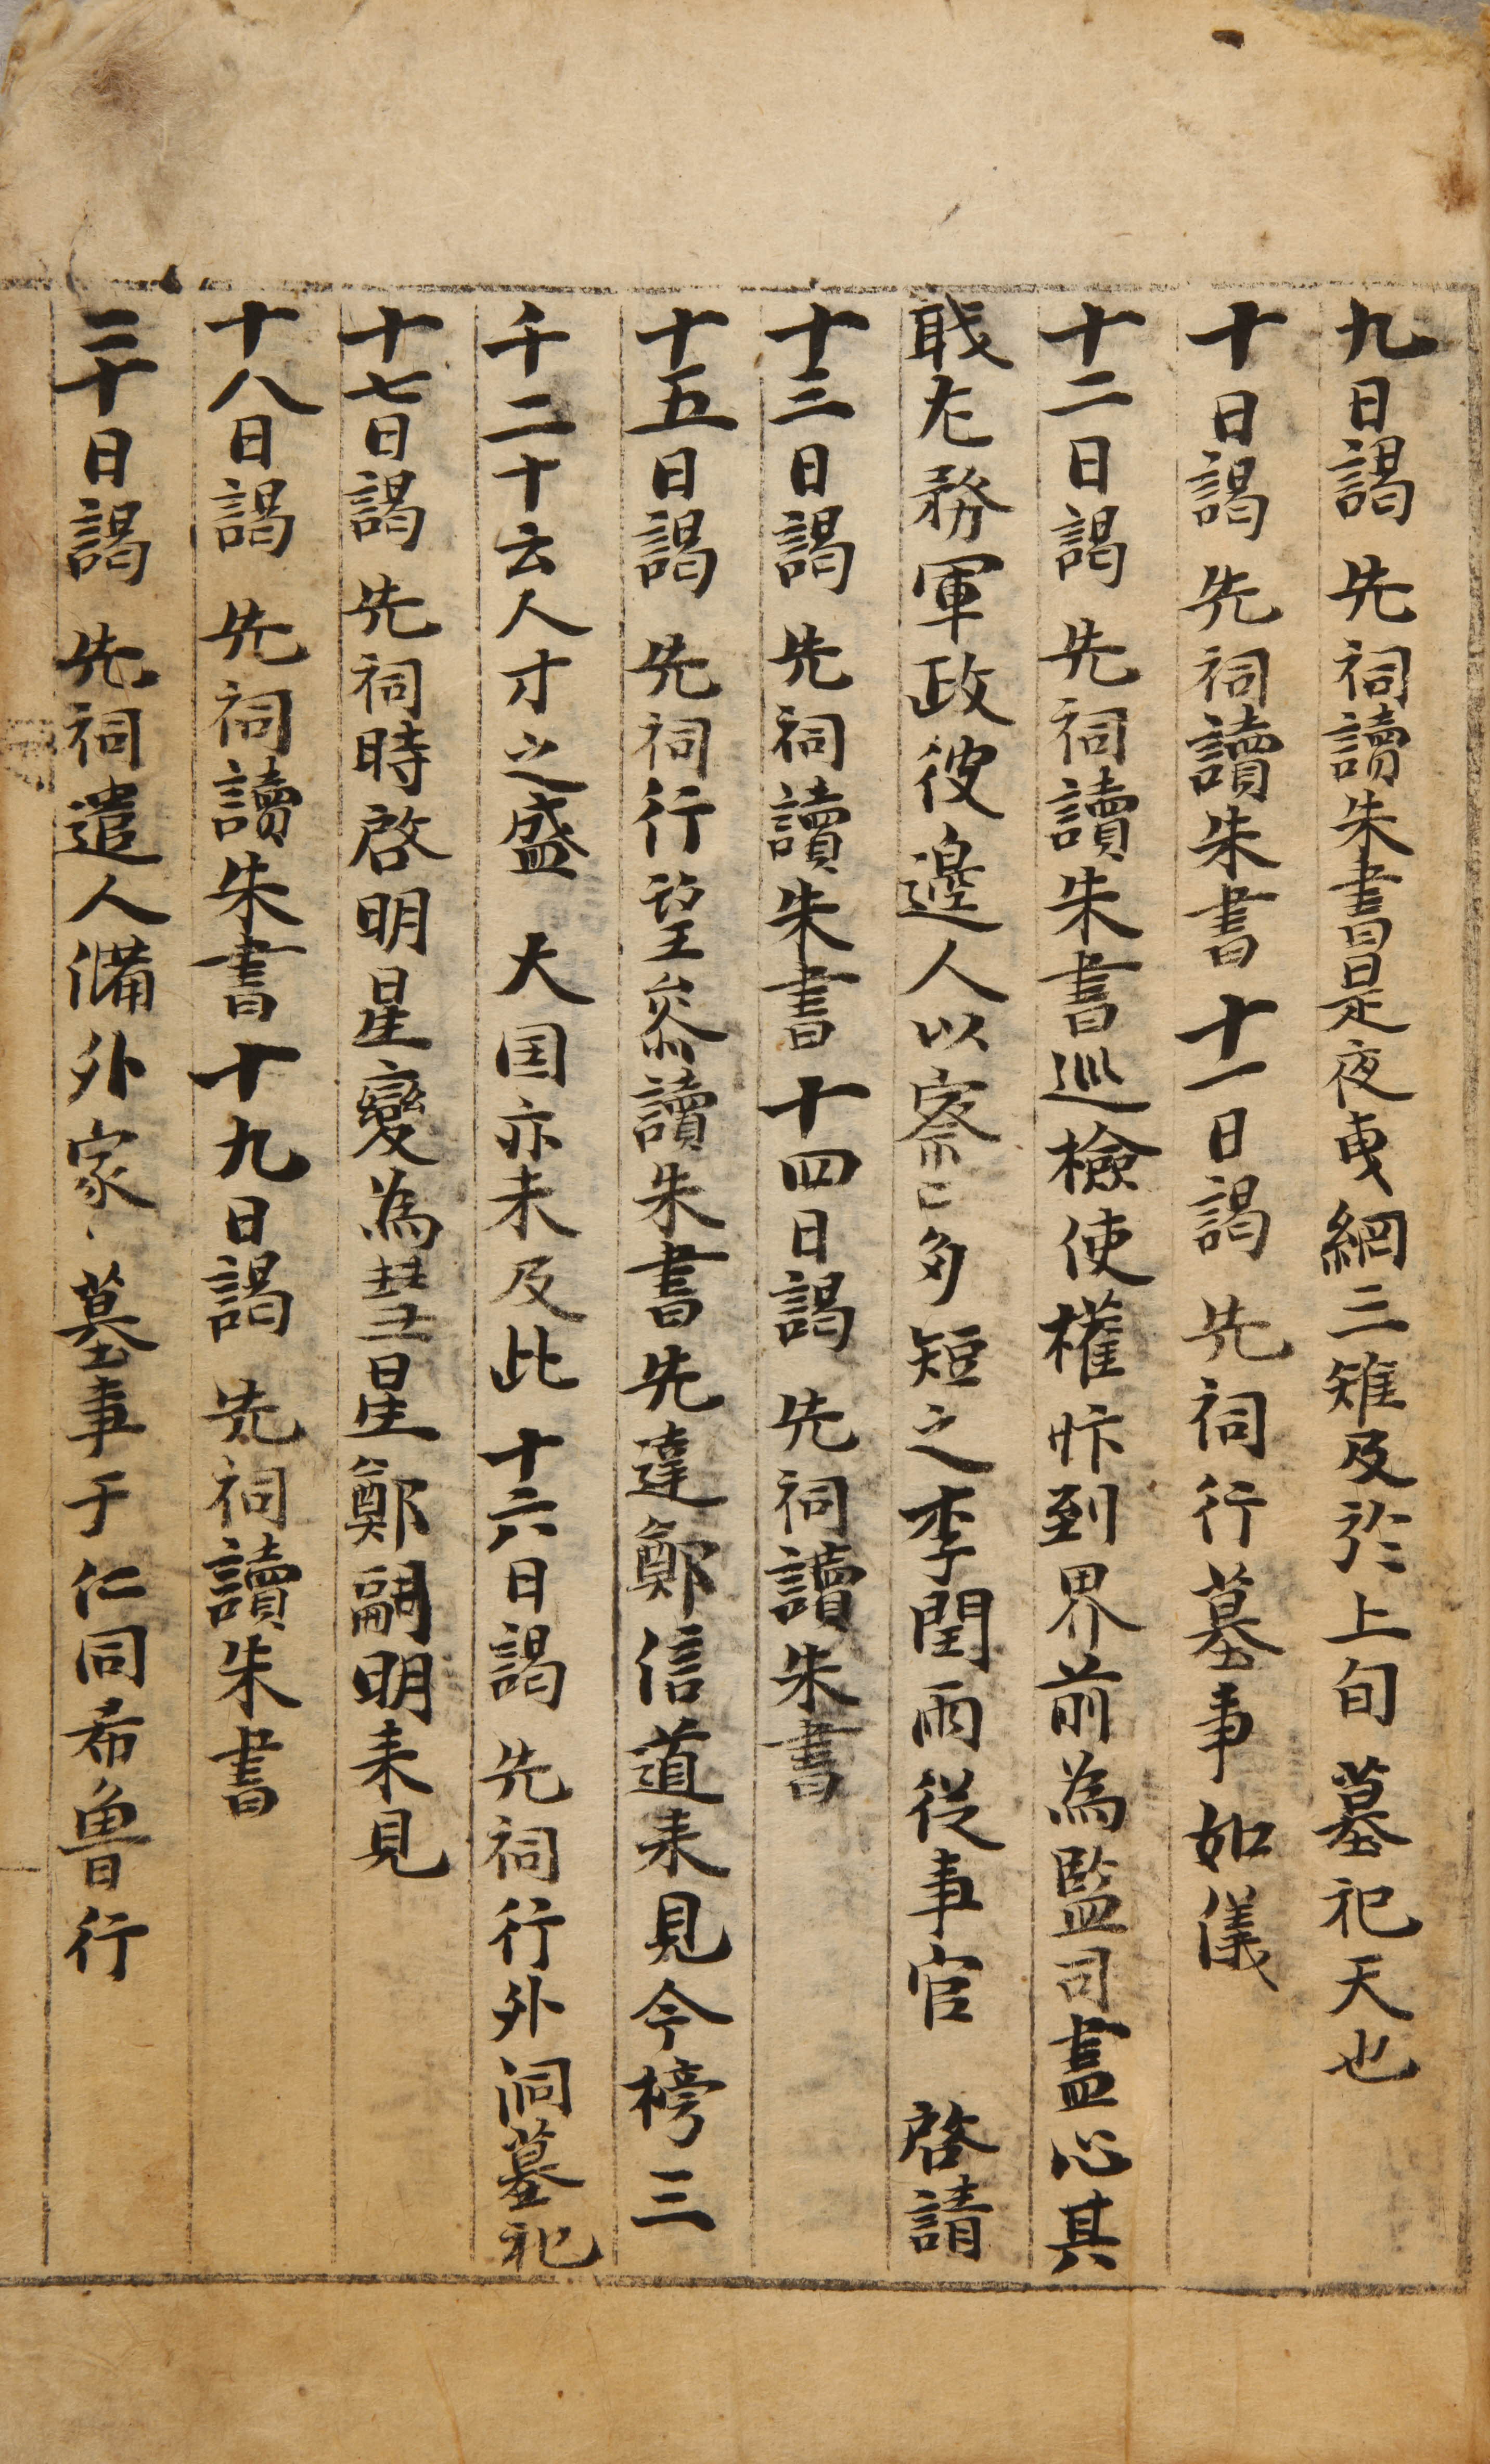 九日謁 先祠讀朱書是夜曳網三雉及於上旬墓祀天也
十日謁 先祠讀朱書十一日謁 先祠行墓事如儀
十二日謁 先祠讀朱書巡檢使權忭到界前為監司盡心其
戢尤務軍政彼邊人以察口多短之李閏雨從事官 啓請
十三日謁 先祠讀朱書十四日謁 先祠讀朱書
十五日謁 先祠行望叅讀朱書先達鄭信道来見今榜三
千二十云人才之盛 大国亦未及此十六日謁 先祠行外洞墓祀
十七日謁 先祠時啓明星變為彗星鄭嗣明来見
十八日謁 先祠讀朱書十九日謁 先祠讀朱書
二十日謁 先祠遣人備外家墓事于仁同希魯行